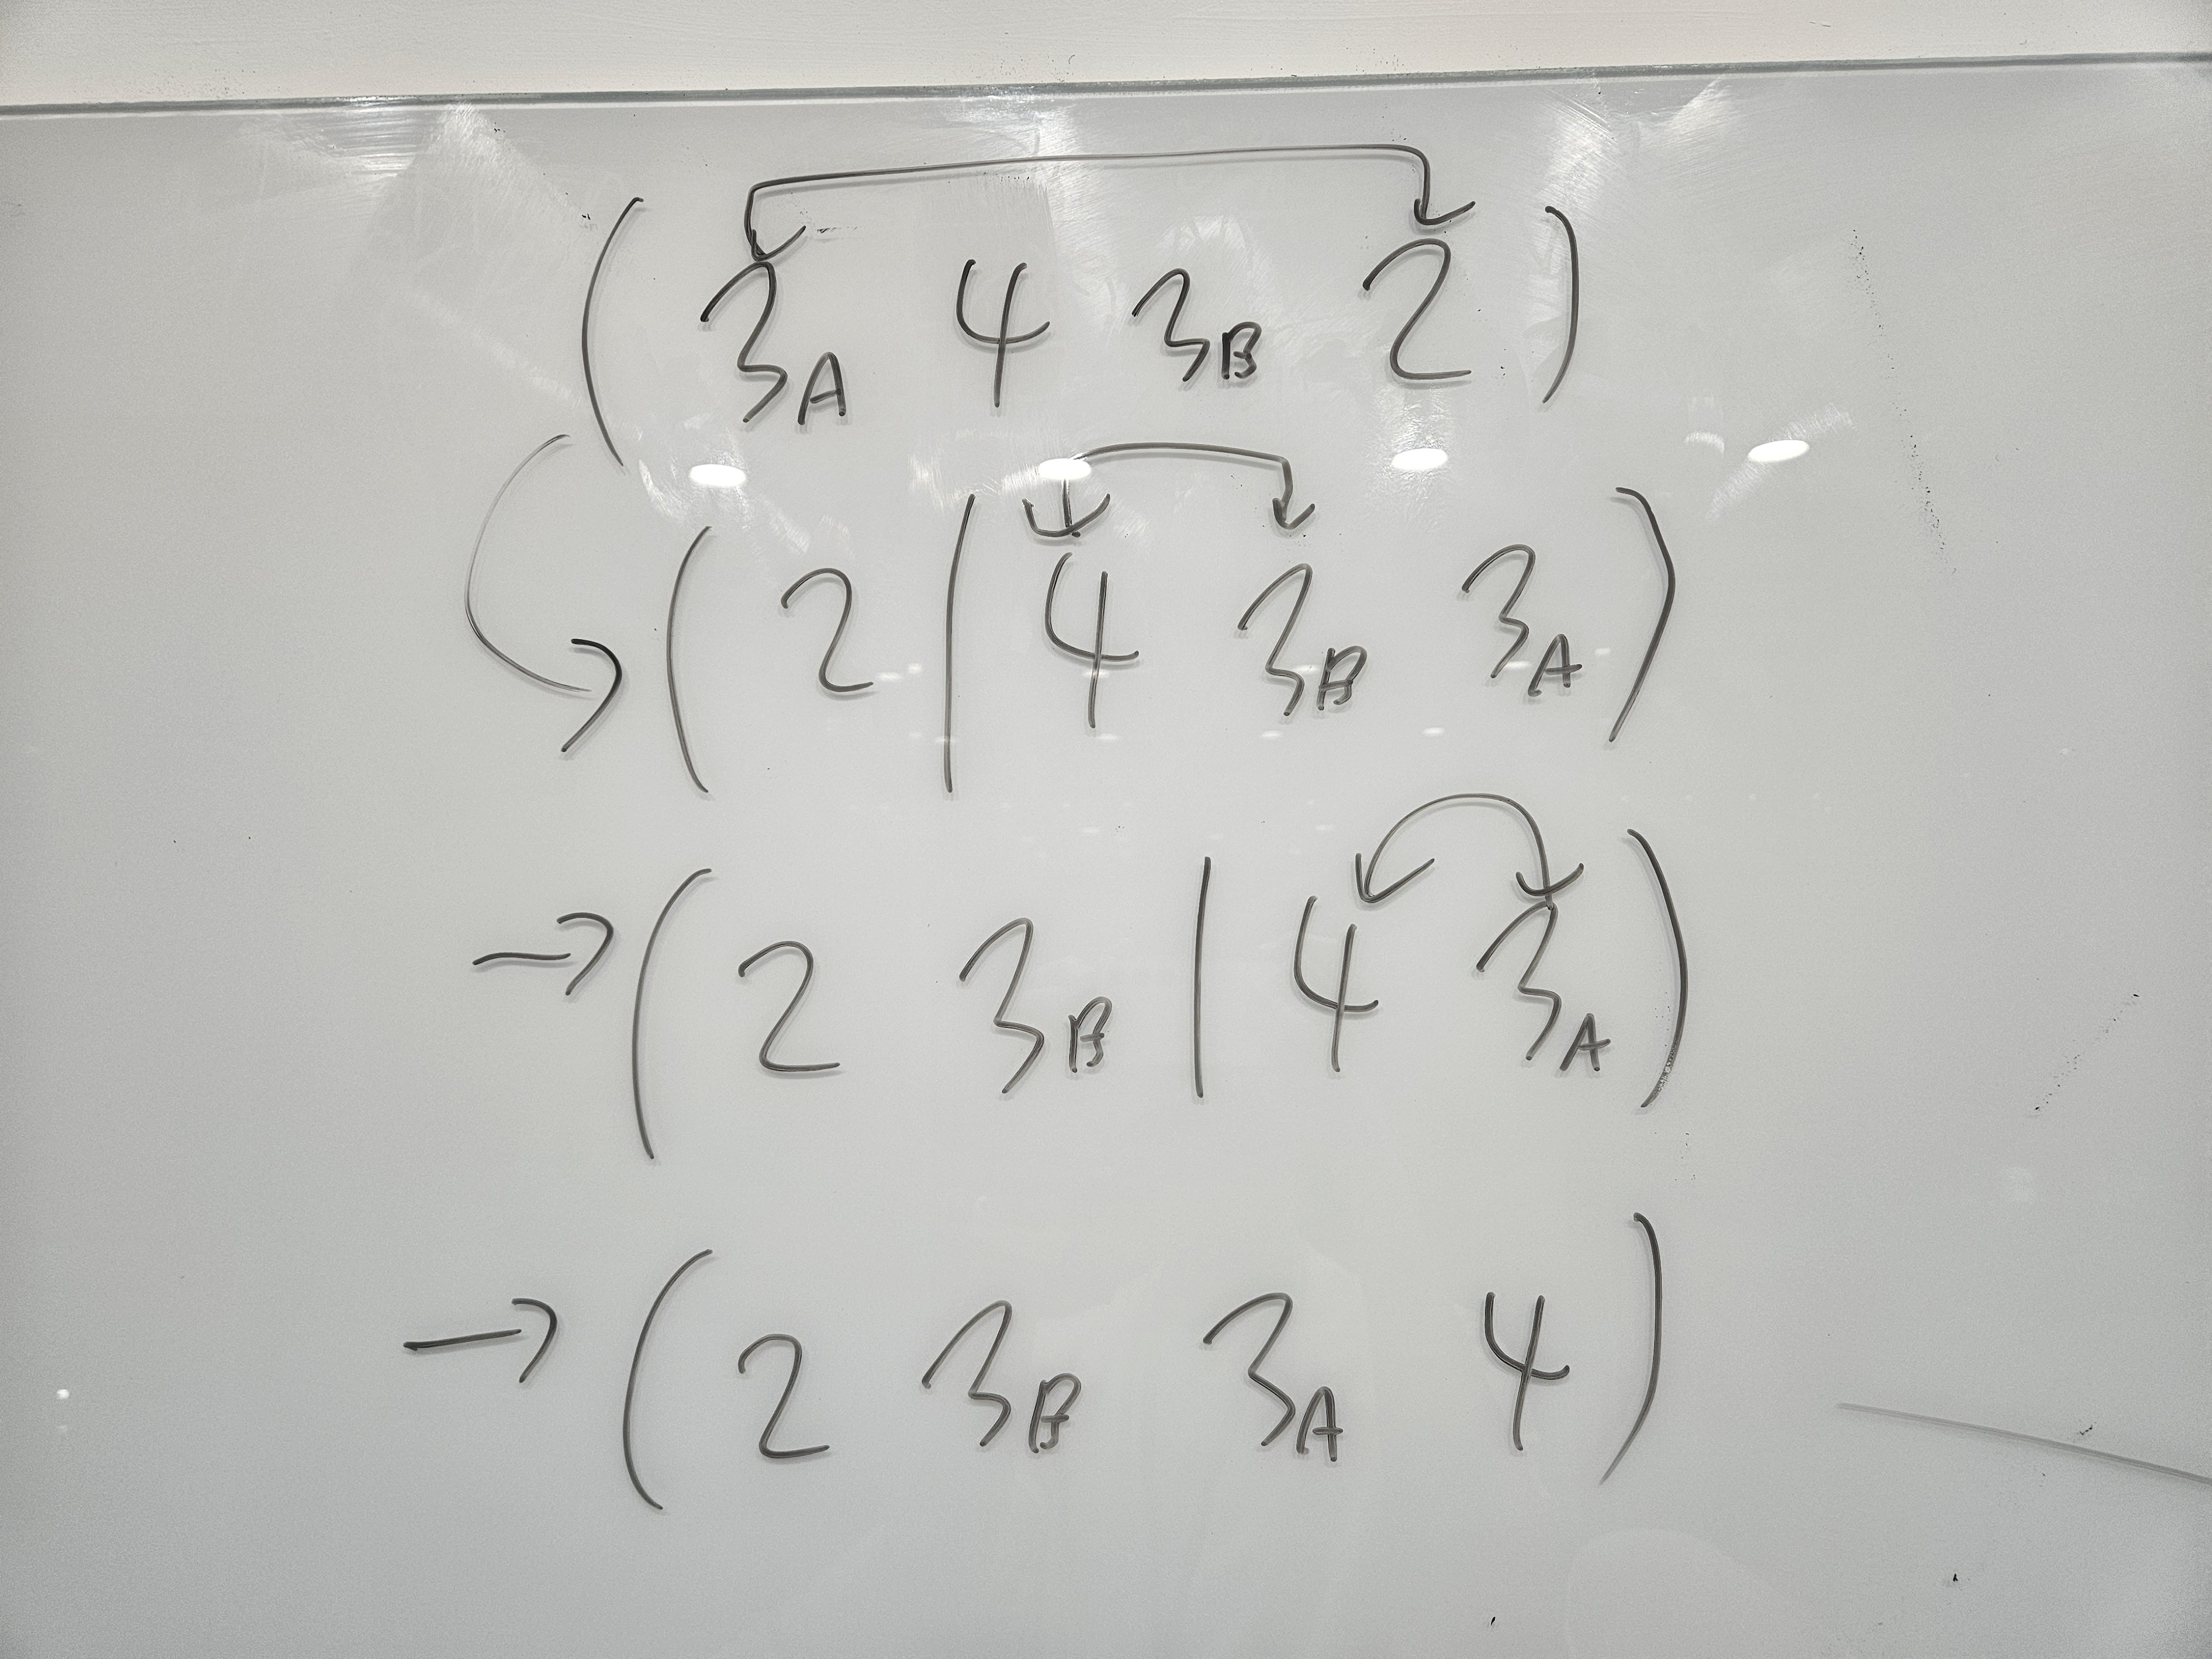 ( 3A 4 3B 2 )
( 2 | 4 3B 3A )
→ ( 2 3B | 4 3A )
→ ( 2 3B 3A 4 )